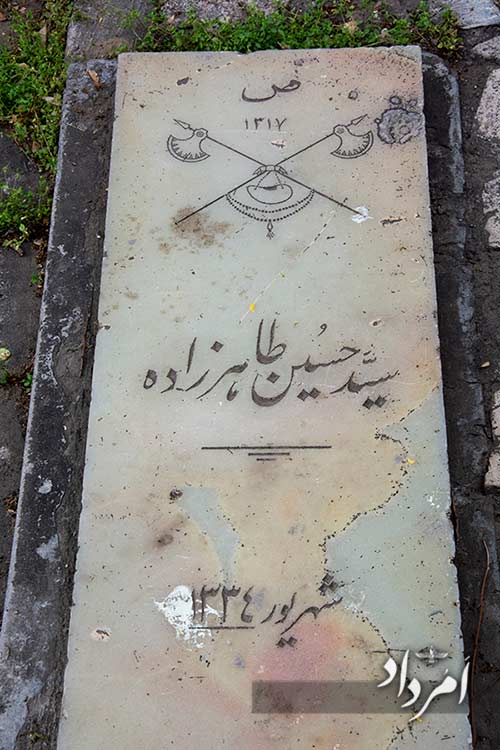 ص
۱۳۱۷
سیَّد حسُین طاهرزاده
شهریور ۱۳۳٤
اَمُرداد